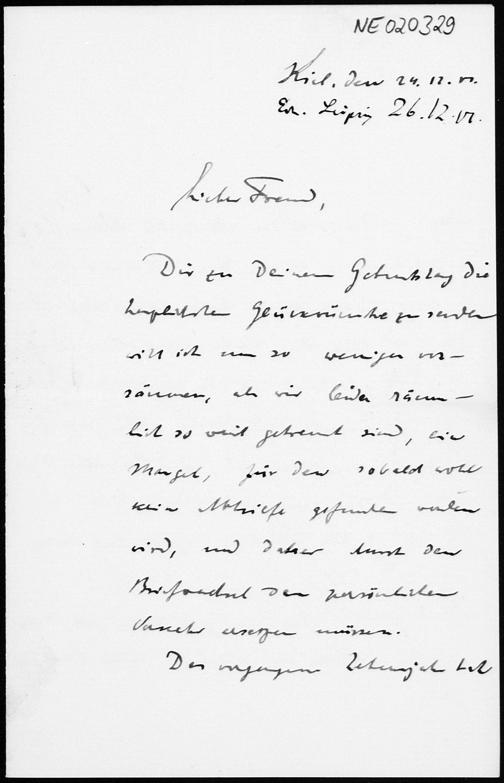 NE020329
Kiel, den 24.12.
Leipzig 26.12.
Lieber Freund,
Dir zu Deinem Geburtstag die
herzlichsten Glückwünsche zu senden
will ich um so weniger ver-
säumen, als wir leider räum-
lich so weit getrennt sind, ein
Mangel, für den sobald wohl
keine Abhilfe gefunden werden
wird, und daher durch den
Briefwechsel den persönlichen
Verkehr ersetzen müssen.
Das vergangene Lebensjahr hat